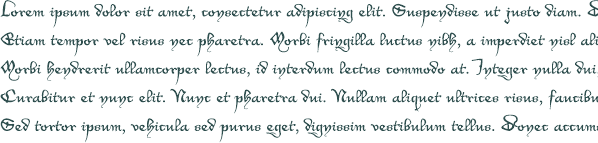 Lorem ipsum dolor sit amet, consectetur adipiscing elit. Suspendisse ut justo diam. D
Etiam tempor vel risus nec pharetra. Morbi fringilla luctus nibh, a imperdiet nisl ali
Morbi hendrerit ullamcorper lectus, id interdum lectus commodo at. Integer nulla dui,
Curabitur et nunc elit. Nunc et pharetra dui. Nullam aliquet ultrices risus, faucibu
Sed tortor ipsum, vehicula sed purus eget, dignissim vestibulum tellus. Donec accums